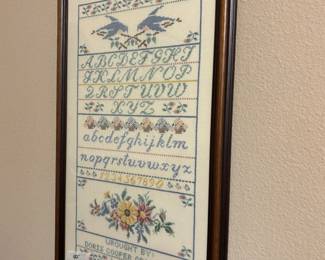 ABCDEFGHI
JKLMNOP
QRSTUVW
XYZ
abcdefghijklm
nopqrstuvwxyz
1234567890
WROUGHT BY:
DORIS COOPER